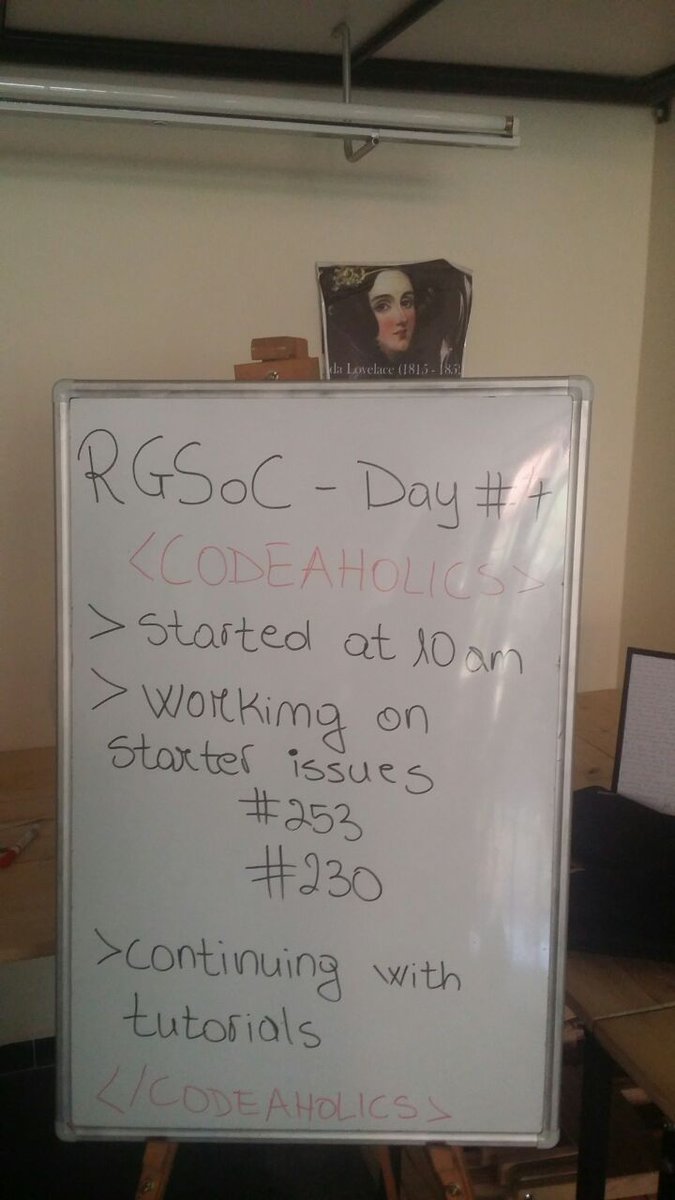 da Lovelace (1815 - 185
RGSoC - Day #4
<CODEAHOLICS>
> started at 10 am
> working on
starter issues
#253
#230
> continuing with
tutorials
</CODEAHOLICS>